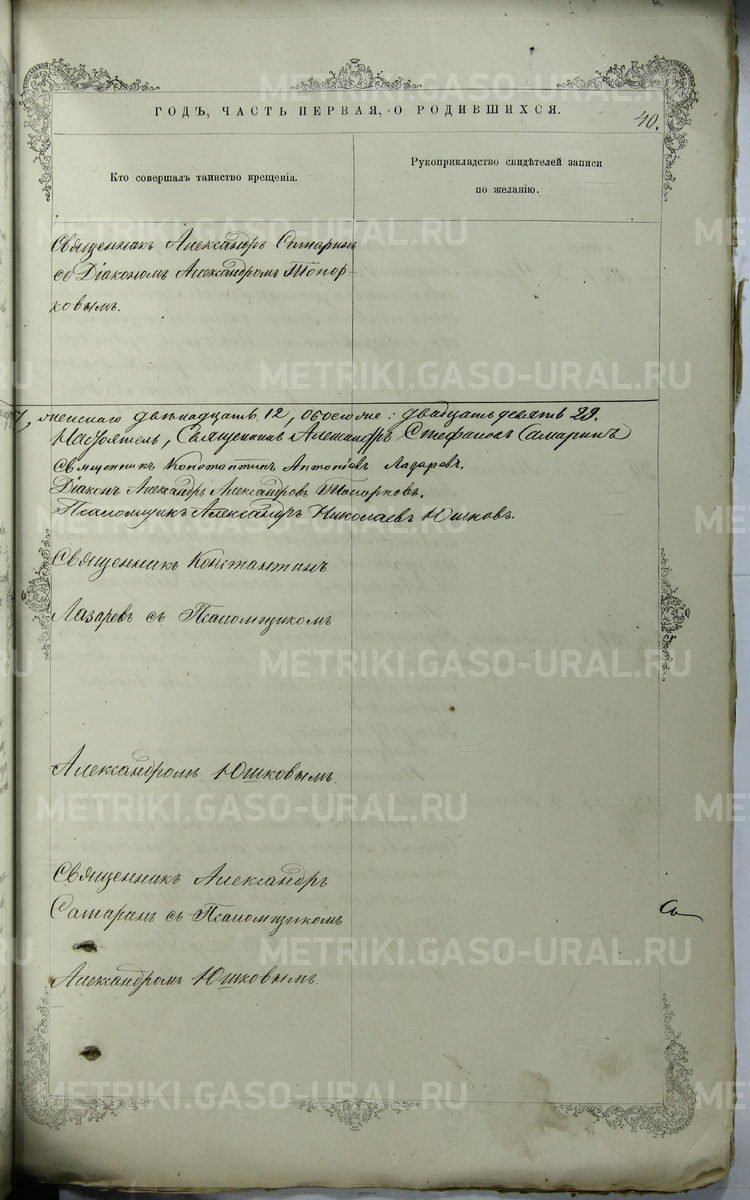 ГОДЪ, ЧАСТЬ ПЕРВАЯ, О РОДИВШИХСЯ.
40.
Кто совершалъ таинство крещенія.
Рукоприкладство свидѣтелей записи
по желанію.
Священникъ Александръ Самаринъ
съ Діакономъ Александромъ Топор-
ковымъ.
женскаго двѣнадцать 12, обоего же: двадцать девять 29.
Настоятель, Священникъ Александръ Стефановъ Самаринъ
Священникъ Константинъ Антоніевъ Лазаревъ.
Діаконъ Александръ Александровъ Топорковъ.
Псаломщикъ Александръ Николаевъ Юшковъ.
Священникъ Константинъ
Лазаревъ съ Псаломщикомъ
Александромъ Юшковымъ.
Священникъ Александръ
Самаринъ съ Псаломщикомъ
Са
Александромъ Юшковымъ.
METRIKI.GASO-URAL.RU